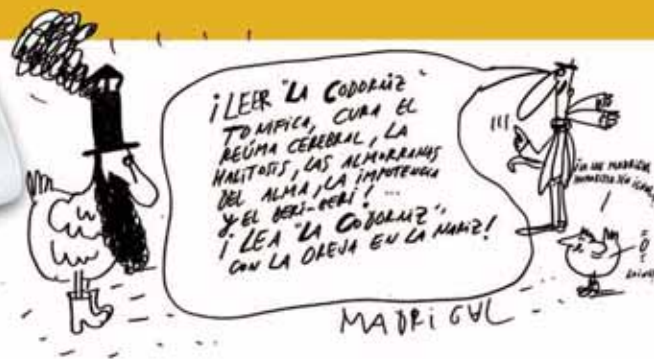 ¡LEER "LA CODORNIZ"
TONIFICA, CURA EL
REÚMA CEREBRAL, LA
HALITOSIS, LAS ALMORRANAS
DEL ALMA, LA IMPOTENCIA
Y EL BERI-BERI! ...
¡LEA "LA CODORNIZ",
CON LA OREJA EN LA NARIZ!
!!!
MADRIGAL